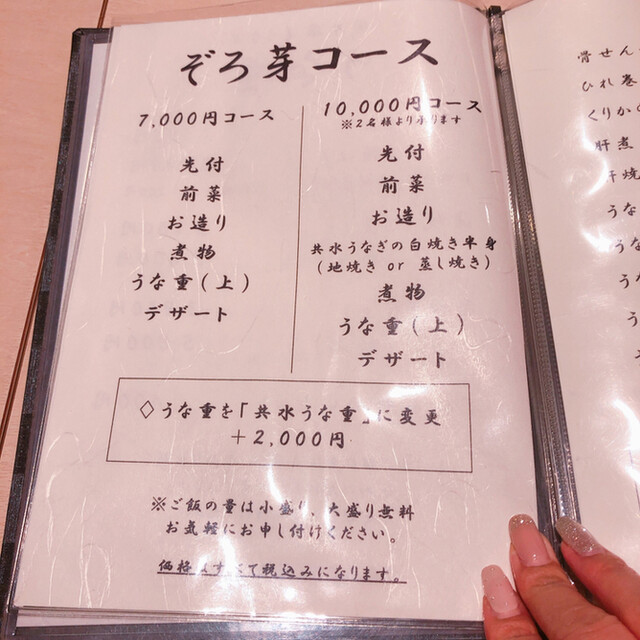 ぞろ芽コース
7,000円コース
先付
前菜
お造り
煮物
うな重(上)
デザート
10,000円コース
※2名様より承ります
先付
前菜
お造り
共水うなぎの白焼き半身
(地焼き or 蒸し焼き)
煮物
うな重(上)
デザート
◇うな重を「共水うな重」に変更
+2,000円
※ご飯の量は小盛り、大盛り無料
お気軽にお申し付けください。
価格はすべて税込みになります。
骨せん
ひれ巻
くりか
肝煮
肝焼
うな
うな
う
うな